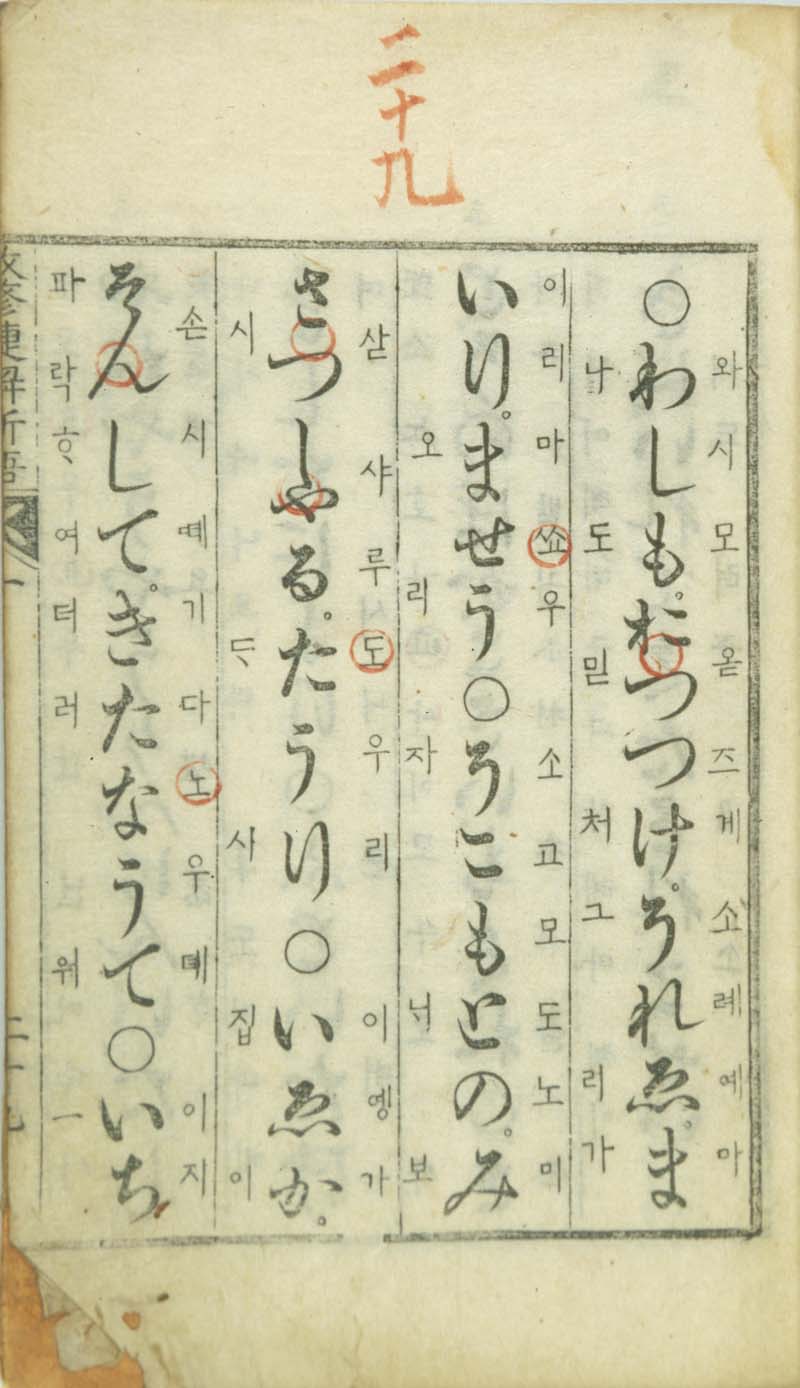 二十九
와시모옫즈게소례예마
○わしも。おつつけ。それゑ。ま
나도믿처그리가
이리마쑈우소고모도노미
いり。ませう○そこもとの。み
오리자ᄂᆡ보
삳샤루도우리이옝가
さつしやる。たうり○いゑか。
시ᄃᆞ사집이
손시뎨기다노우뎨이지
そんして。きたなうて○いち
파락ᄒᆞ여더러워一
改修捷解新語 一 二十九